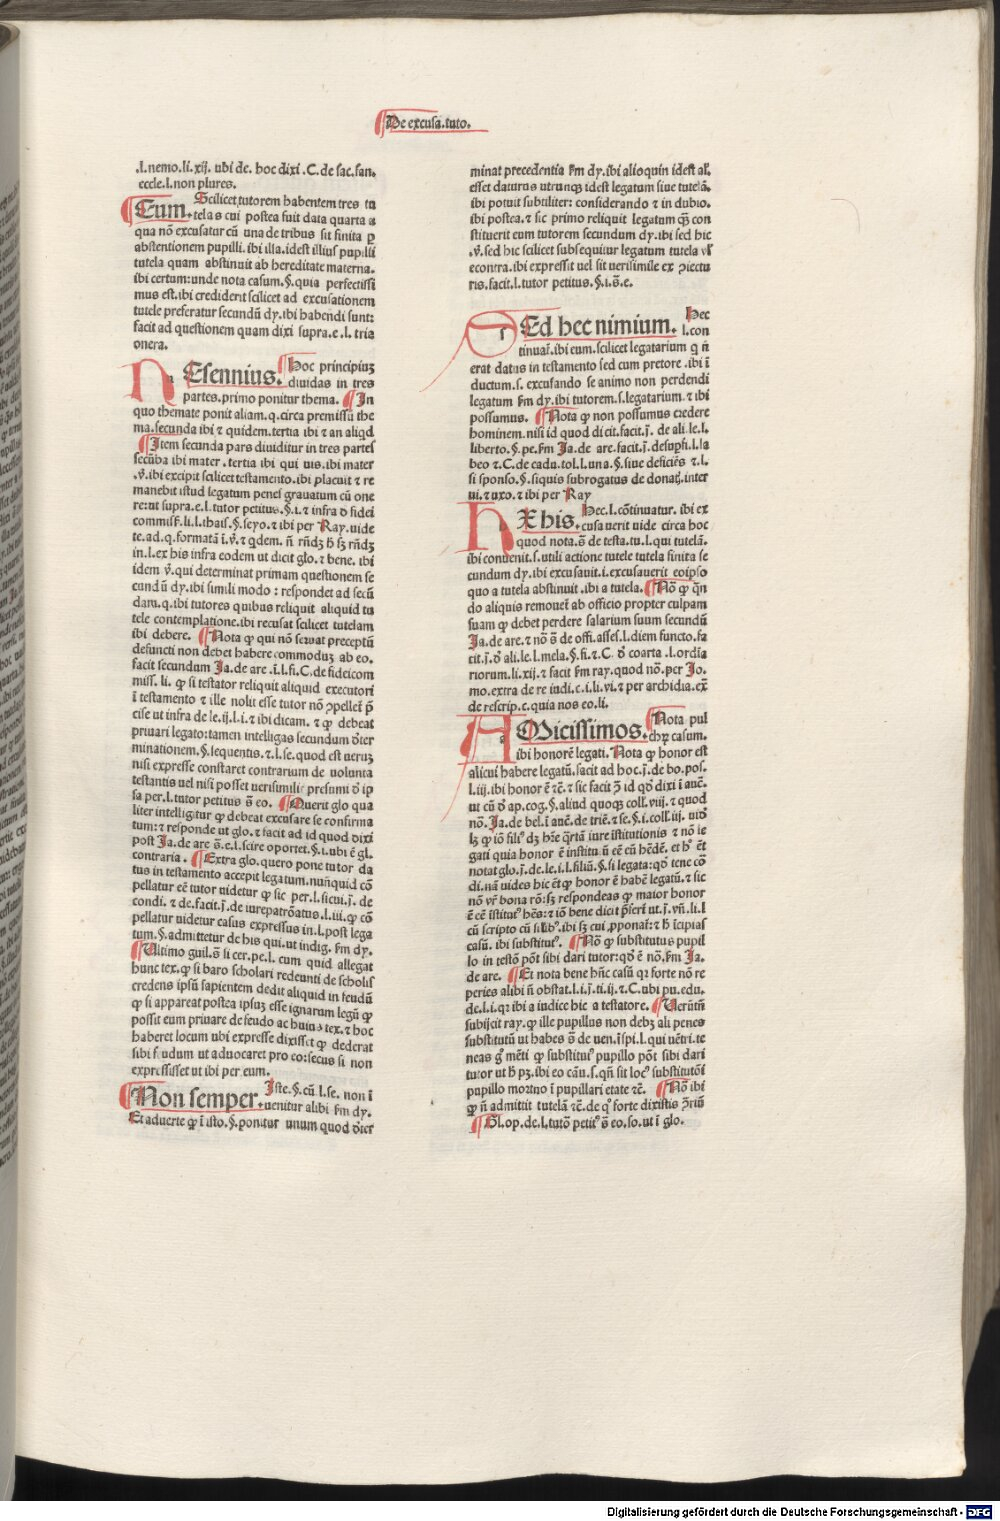 De excusa.tuto.
.l.nemo.li.xij. ubi de. hoc dixi .C.de sac.san.
eccle.l.non plures.
Eum. Scilicet tutorem habentem tres tu
telas cui postea fuit data quarta a
qua nõ excusatur cũ una de tribus sit finita p
abstentionem pupilli. ibi illa. idest illius pupilli
tutela quam abstinuit ab hereditate materna.
ibi certum: unde nota casum. §. quia perfectissi
mus est. ibi crediderit scilicet ad excusationem
tutele preferatur secundũ dy. ibi habendi sunt:
facit ad questionem quam dixi supra.e.l.tria
onera.
NEsennius. Hoc principiuz
dividas in tres
partes. primo ponitur thema. In
quo themate ponit aliam.q.circa premissũ the
ma. secunda ibi et quidem. tertia ibi et an aliqd
Item secunda pars dividitur in tres partes
secũda ibi mater. tertia ibi qui uis. ibi mater
.v̾. ibi excipit scilicet testamento. ibi placuit et re
manebit istud legatum penes gravatum cũ one
re: ut supra.e.l.tutor petitus. §.i. et infra d̾ fidei
commiss̃.li.l.thais. §.seyo. et ibi per Ray. uide
te.ad.q.formatã i.v̾. et qdem. ñ rñdz h̃ sz rñdz
in.l.ex his infra eodem ut dicit glo. et bene. ibi
idem v̾. qui determinat primam questionem se
cundũ dy. ibi simili modo : respondet ad secũ
dam.q. ibi tutores quibus reliquit aliquid tu
tele contemplatione. ibi recusat scilicet tutelam
ibi debere. Nota qp qui nõ servat preceptũ
defuncti non debet habere commoduz ab eo.
facit secundum Ja.de are.i.l.fi.C.de fideicom
miss. li. qp si testator reliquit aliquid executori
ĩ testamento et ille nolit esse tutor nõ ɔpelleť p̃
cise ut infra de le.ij.l.i.et ibi dicam. et qp debeat
privari legato: tamen intelligas secundum d̾ter
minationem. §. sequentis. et l.se. quod est veruz
nisi expresse constaret contrarium de volunta
testantis vel nisi posset verisimilis presumi d̾ ip
sa per.l.tutor petitus s̃ eo. Querit glo qua
liter intelligitur qp debeat excusare se confirma
tum: et responde ut glo. et facit ad id quod dixi
post Ja.de are s̃.e.l.scire oportet. §.i. ubi ẽ gl.
contraria. Extra glo. quero pone tutor da
tus in testamento accepit legatum. nunquid cõ
pellatur eẽ tutor videtur qp sic per.l.sicui.j.de
condi. et de.facit.j.de iurepatrõatus.l.iii. qp cõ
pellatur videtur casus expressus in.l.post lega
tum. §.admittetur de his qui.ut indig. s̃m dy.
Ultimo guil.s̃ si cer.pe.l.cum quid allegat
hunc tex. qp si baro scholari redeunti de scholis
credens ipsũ sapientem dedit aliquid in feudũ
qp si appareat postea ipsuz esse ignarum legũ qp
possit eum privare de feudo ac huius tex. et hoc
haberet locum ubi expresse dixisset qp dederat
sibi feudum ut advocaret pro eo: secus si non
expressisset ut ibi per eum.
Non semper. Iste. §. cũ.l.se. non ĩ
venitur alibi s̃m dy.
Et adverte qp ĩ isto. §. ponitur unum quod d̾ter
minat precedentia s̃m dy. ibi alioquin idest al̃.
esset daturus utrunqz idest legatum sive tutelã.
ibi potuit subtiliter: considerando et in dubio.
ibi postea. et sic primo reliquit legatum qz con
stituerit eum tutorem secundum dy. ibi sed hic
.v̾. sed hic scilicet subsequitur legatum tutela vl̃
econtra. ibi expressit vel sit verisimile ex ɔiectu
ris. facit.l.tutor petitus. §.i.s̃.e.
SEd hec nimium. Hec
l.con
tinuať. ibi eum. scilicet legatarium q ñ
erat datus in testamento sed cum pretore. ibi ĩ
ductum. s. excusando se animo non perdendi
legatum s̃m dy. ibi tutorem. s. legatarium. et ibi
possumus. Nota qp non possumus credere
hominem. nisi id quod dicit. facit.j.de ali.le.l.
liberto. §.pe.s̃m Ja.de are. facit.j.desupsti.l.la
beo et.C.de cadu.tol.l.una. §.sive deficiẽs et.l.
si sponso. §.siquis subrogatus de donať.inter
vi.et uxo. et ibi per Ray
EXhis. Hec.l.cõtinuatur. ibi ex
cusaverit vide circa hoc
quod nota.s̃ de testa.tu.l.qui tutelã.
ibi convenit. s. utili actione tutele tutela finita se
cundum dy. ibi excusavit. i. excusaverit eoipso
quo a tutela abstinuit. ibi a tutela. Nõ qp qñ
do aliquis removeť ab officio propter culpam
suam qp debet perdere salarium suum secundũ
Ja.de are. et nõ s̃ de offi.asses.l.diem functo.fa
cit.j.d̾ ali.le.l.mela. §.fi. et C.d̾ coarta.l.ordĩa
riorum.li.xij. et facit s̃m ray. quod nõ. per Jo.
mo.extra de re iudi.c.i.li.vi. et per archidia.ex̃
de rescrip.c.quia nos eo.li.
AMicissimos. Nota pul
chrz casum.
ibi honorẽ legati. Nota qp honor est
alicui habere legatũ. facit ad hoc.j.de bo.pos.
l.iij. ibi honor ẽ etc̃. et sic facit ɔ̃ id qd̾ dixi ĩ auc̃.
ut cũ d̾ ap.cog. §.aliud quoqz coll.viij. et quod
nõ.Ja.de bel.ĩ auc̃.de triẽ. et se. §.i.coll.iij. vid̾
gati quia honor ẽ institu.ñ eẽ cũ h̾edẽ. et h̾ ẽť
notat glo.j.de le.i.l.filiũ. §.si legata: qd̾ tene cõ
di.nã vides hic ẽť qp honor ẽ habẽ legatũ. et sic
nõ vr̃ bona rõ: sz respondeas qp maior honor
casũ. ibi substituť. Nõ qp substitutus pupil
lo in testõ põt sibi dari tutor: qd̾ ẽ nõ.s̃m Ja.
de are. Et nota bene hũc casũ qr forte nõ re
peries alibi ñ obstat.l.i.j.ti.ij. et C.ubi pu.edu.
de.l.i.qr ibi a iudice hic a testatore. Verũtñ
subijcit ray. qp ille pupillus non debz ali penes
substitutũ ut habes s̃ de ven.ĩspi.l.qui vẽtri.te
neas g̃ mẽti qp substituť pupillo põt sibi dari
tutor ut h̃ pz. ibi eo cãu. s. qñ sit loc̾ substitutõi
pupillo mortuo ĩ pupillari etate etc̃. Nõ ibi
qp ñ admittit tutelã etc̃. de q̾ forte dixistis ɔ̃riũ
Sl.op.de.l.tutõ petiť s̃ eo.so.ut ĩ glo.
Digitalisierung gefördert durch die Deutsche Forschungsgemeinschaft - DFG